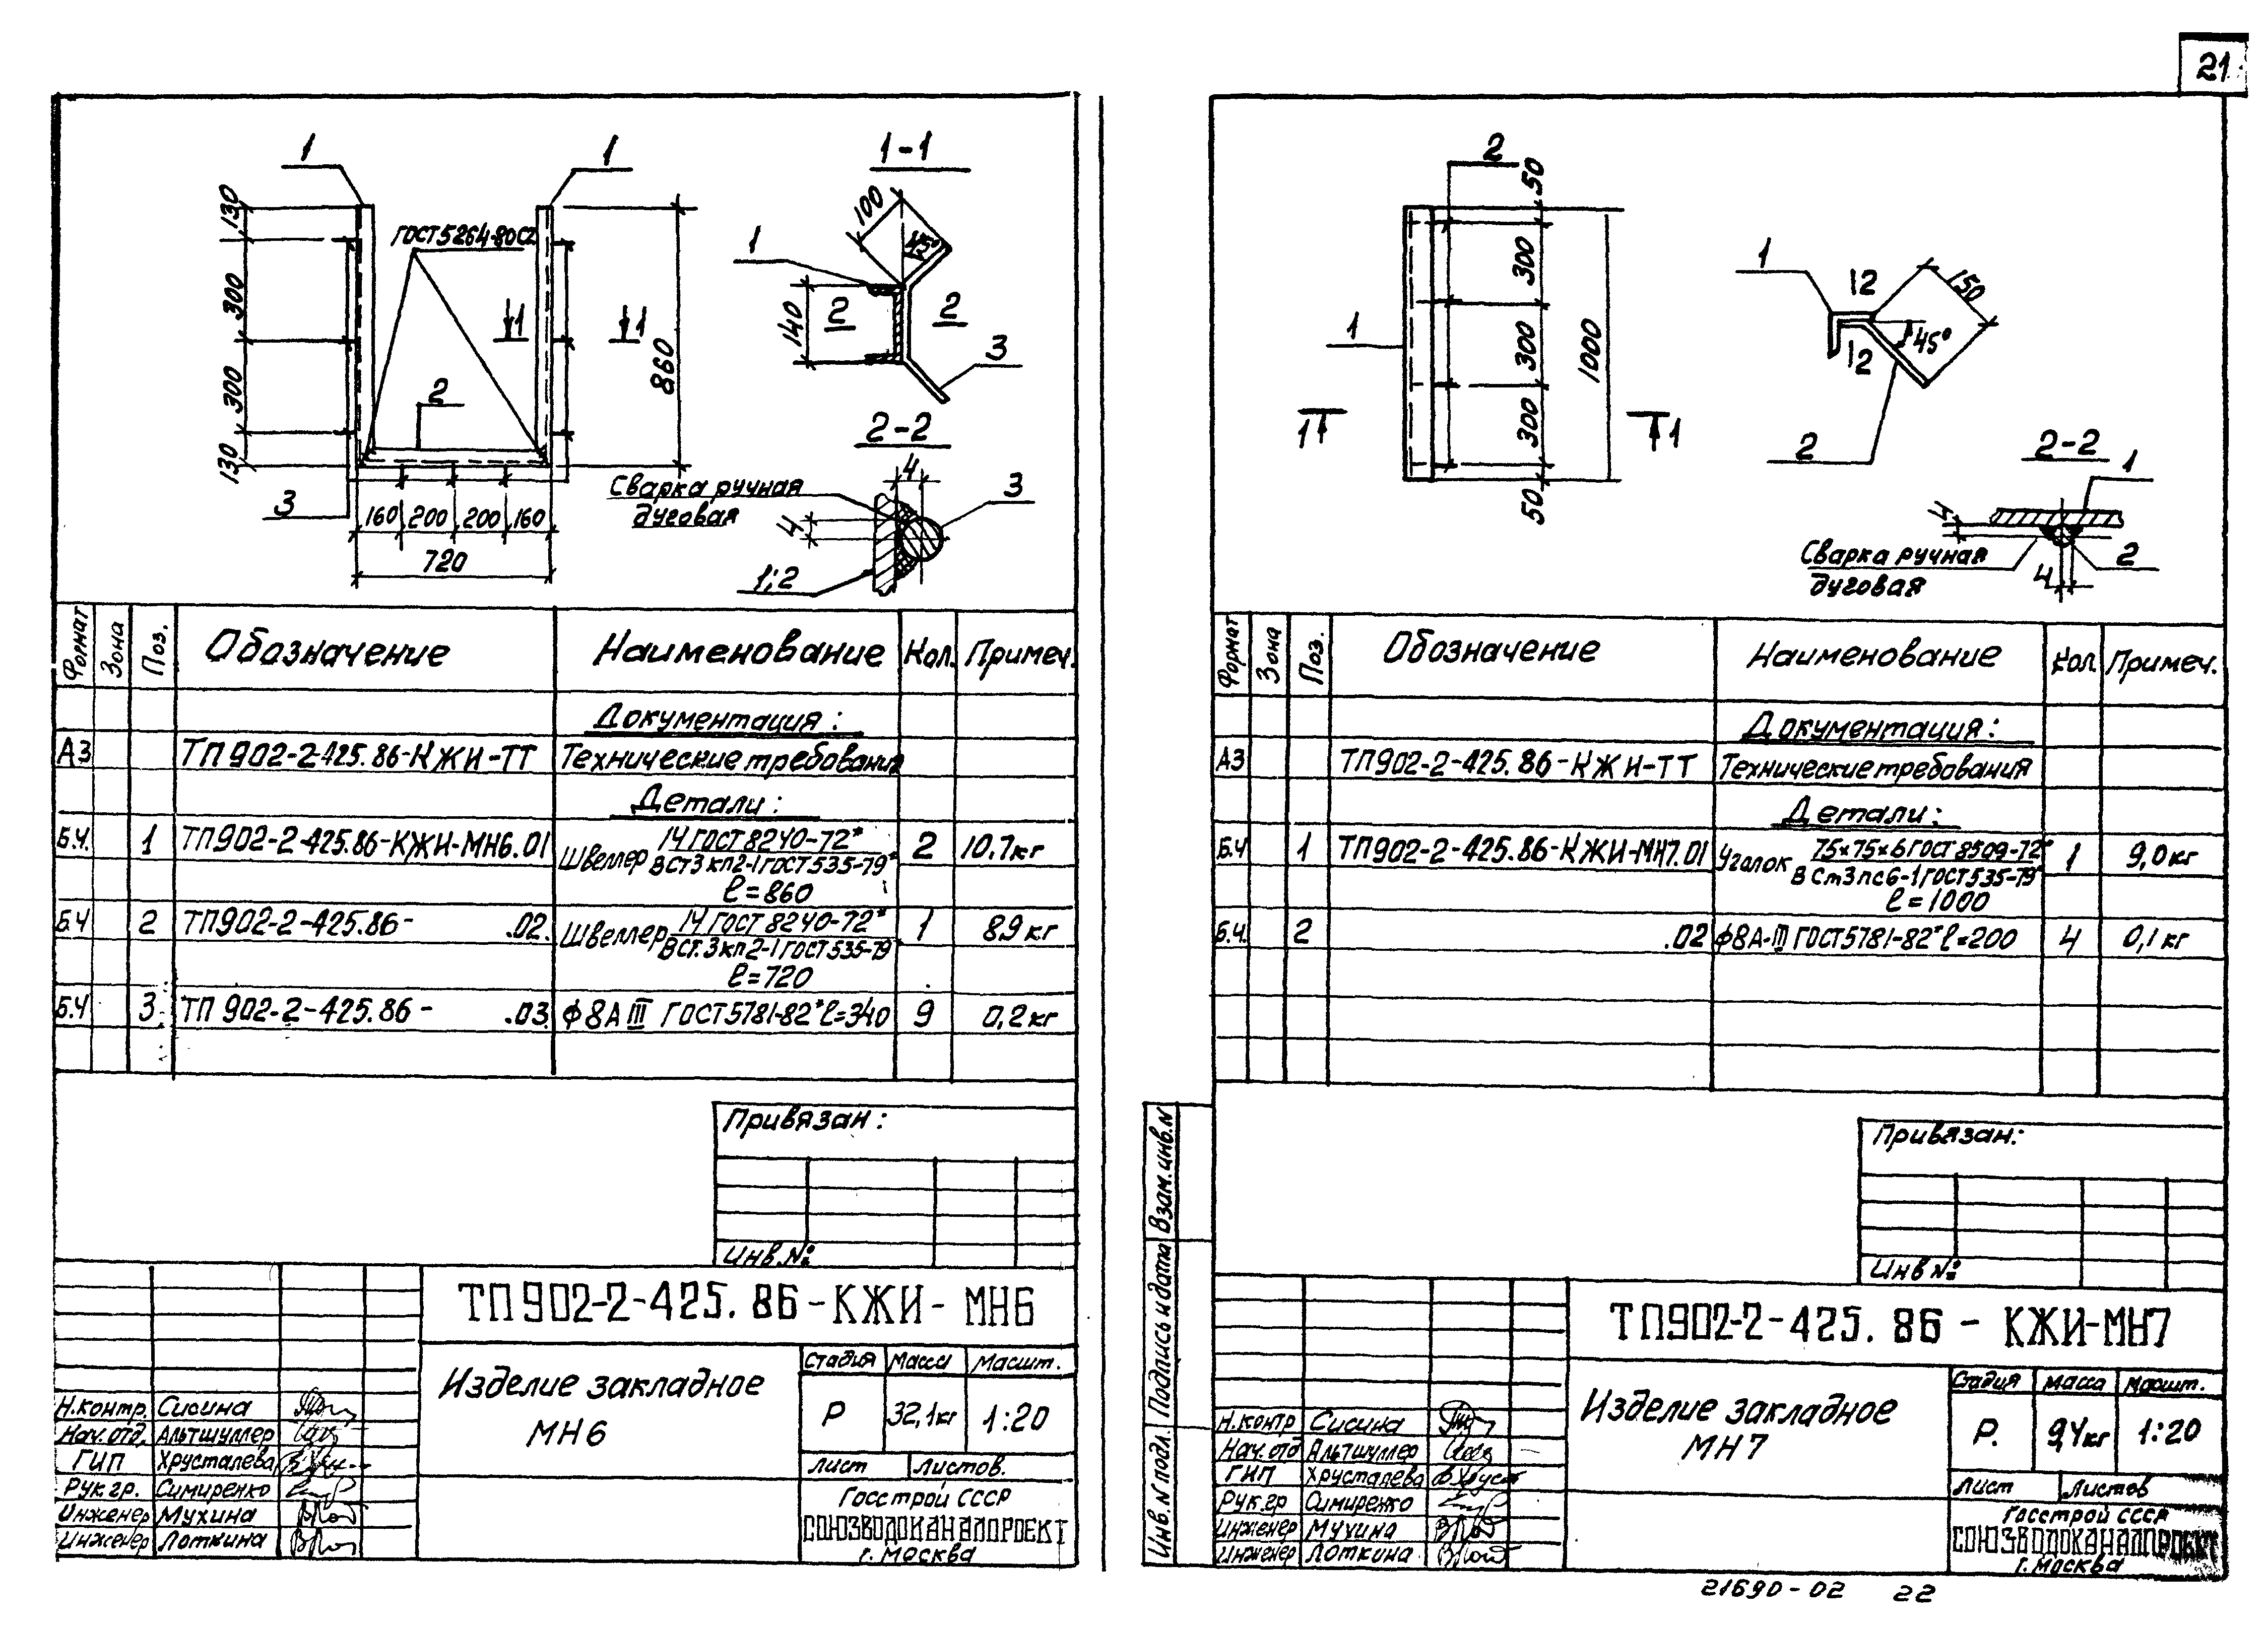 21
1
1
1-1
130
300
300
130
ГОСТ 5264-80 С2
1
1
860
2
3
160
200
200
160
720
100
45°
1
2
2
140
3
2-2
4
3
Сварка ручная
дуговая
4
1;2
Формат
Зона
Поз.
Обозначение
Наименование
Кол.
Примеч.
Документация:
А3 ТП902-2-425.86-КЖИ-ТТ Технические требования
Детали:
Б.Ч. 1 ТП902-2-425.86-КЖИ-МН6.01 Швеллер 14 ГОСТ 8240-72* 2 10,7кг
ВСт3кп2-1 ГОСТ 535-79*
ℓ=860
Б.Ч 2 ТП902-2-425.86- .02. Швеллер 14 ГОСТ 8240-72* 1 8,9кг
ВСт.3кп2-1 ГОСТ 535-79*
ℓ=720
Б.Ч 3 ТП 902-2-425.86- .03. ф8АIII ГОСТ 5781-82* ℓ=340 9 0,2кг
Привязан:
Инв.№
ТП902-2-425.86-КЖИ-МН6
Изделие закладное
МН6
Стадия Масса Масшт.
Р 32,1кг 1:20
Лист Листов.
Госстрой СССР
СОЮЗВОДОКАНАЛПРОЕКТ
г. Москва
Н.контр. Сисина
Нач.отд. Альтшуллер
ГИП Хрусталева
Рук.гр. Симиренко
Инженер Мухина
Инженер Лоткина
2
50
300
300
300
50
1000
1
1
1
1
2
2
150
45°
2
2-2
1
4
Сварка ручная
дуговая
4
2
Формат
Зона
Поз.
Обозначение
Наименование
Кол.
Примеч.
Документация:
А3 ТП902-2-425.86-КЖИ-ТТ Технические требования
Детали:
Б.Ч 1 ТП902-2-425.86-КЖИ-МН7.01 Уголок 75×75×6 ГОСТ 8509-72* 1 9,0кг
ВСт3пс6-1 ГОСТ 535-79*
ℓ=1000
Б.Ч. 2 .02 ф8А-III ГОСТ 5781-82* ℓ=200 4 0,1кг
Привязан:
Инв №
Взам.инв.N
Подпись и дата
Инв.N подл.
ТП902-2-425.86-КЖИ-МН7
Изделие закладное
МН7
Стадия Масса Масшт.
Р. 9,4кг 1:20
Лист Листов
Госстрой СССР
СОЮЗВОДОКАНАЛПРОЕКТ
г. Москва
Н.контр Сисина
Нач.отд Альтшуллер
ГИП Хрусталева
Рук.гр Симиренко
Инженер Мухина
Инженер Лоткина
21690-02 22